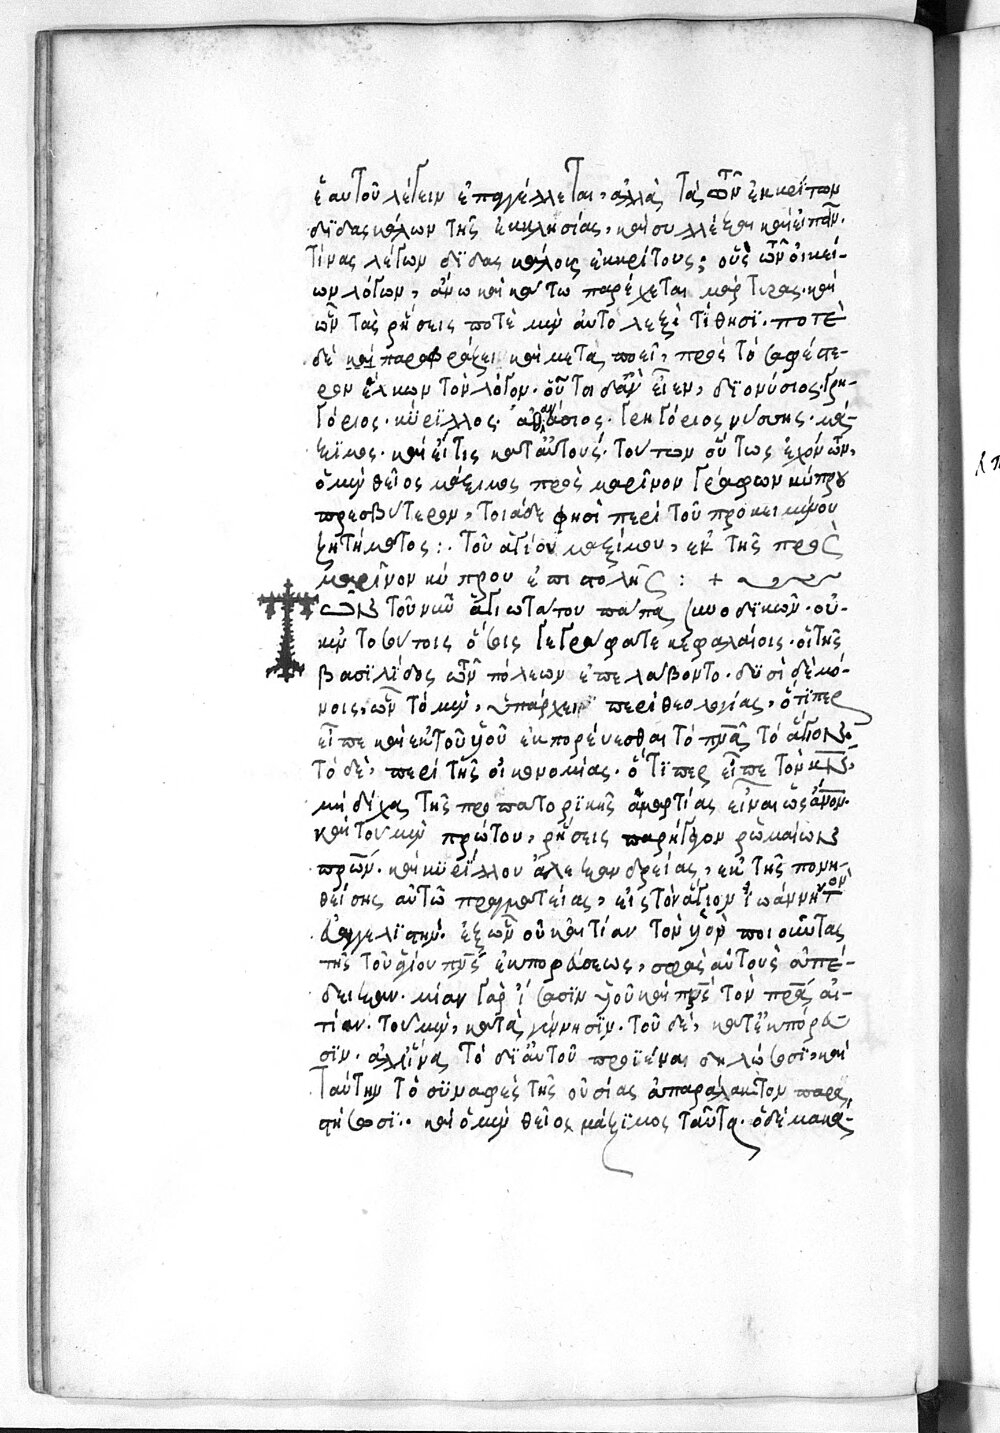 ἑαυτοῦ λέγειν ἐπαγγέλλεται, ἀλλὰ τὰς τῶν ἐκκρίτων
διδασκάλων τῆς ἐκκλησίας, καὶ συλλέξαι καὶ εἰπεῖν.
τίνας λέγων διδασκάλους ἐκκρίτους; οὓς τῶν οἰκεί-
ων λόγων, ἄνω καὶ κάτω παρέχεται μάρτυρας. καὶ
ὧν τὰς ῥήσεις ποτὲ μὲν αὐτολεξὶ τίθησι. ποτὲ
δὲ καὶ παραφράζει καὶ μεταποιεῖ, πρὸς τὸ σαφέστε-
ρον ἕλκων τὸν λόγον. οὗτοι δ' ἂν εἶεν, διονύσιος. γρη-
γόριος. κύριλλος. ἀθανάσιος. γρηγόριος νύσσης. μά-
ξιμος. καὶ εἴ τις κατ' αὐτούς. τούτων οὕτως ἐχόντων,
ὁ μὲν θεῖος μάξιμος πρὸς μαρῖνον γράφων κύπρου
πρεσβύτερον, τοιάδε φησὶ περὶ τοῦ προκειμένου
ζητήματος :. τοῦ ἁγίου μαξίμου, ἐκ τῆς πρὸς
μαρῖνον κύπρου ἐπιστολῆς : +
Τῶν τοῦ νῦν ἁγιωτάτου πάπα συνοδικῶν. οὐ-
κ ἐν τοσούτοις ὅσοις γεγράφατε κεφαλαίοις. οἱ τῆς
βασιλίδος τῶν πόλεων ἐπελάβοντο. δυσὶ δὲ μό-
νοις. ὧν τὸ μέν, ὑπάρχει περὶ θεολογίας, ὅτίπερ
εἶπε καὶ ἐκ τοῦ υἱοῦ ἐκπορεύεσθαι τὸ πνᾶ τὸ ἅγιον.
τὸ δέ, περὶ τῆς οἰκονομίας. ὅτίπερ εἶπε τὸν κν,
μὴ δίχα τῆς προπατορικῆς ἁμαρτίας εἶναι ὡς ἄνον.
καὶ τοῦ μὲν πρώτου, ῥήσεις παρήγαγον ῥωμαίων
πρων. καὶ κυρίλλου ἀλεξανδρείας, ἐκ τῆς πονη-
θείσης αὐτῷ πραγματείας, εἰς τὸν ἅγιον ἰωάννην τὸν
εὐαγγελιστήν. ἐξ ὧν οὐκ αἰτίαν τὸν υἱὸν ποιοῦντας
τῆς τοῦ ἁγίου πνς ἐκπορεύσεως, σφᾶς αὐτοὺς ἀπέ-
δειξαν. μίαν γὰρ ἴσασιν υἱοῦ καὶ πνς τὸν πρα αἰ-
τίαν. τοῦ μέν, κατὰ γέννησιν. τοῦ δέ, κατ' ἐκπόρευ-
σιν. ἀλλ' ἵνα τὸ δι' αὐτοῦ προϊέναι δηλώσωσι, καὶ
ταύτην τὸ συναφὲς τῆς οὐσίας ἀπαράλλακτον παρα-
στήσωσι.. καὶ ὁ μὲν θεῖος μάξιμος ταῦτα. ὁ δὲ μακά-